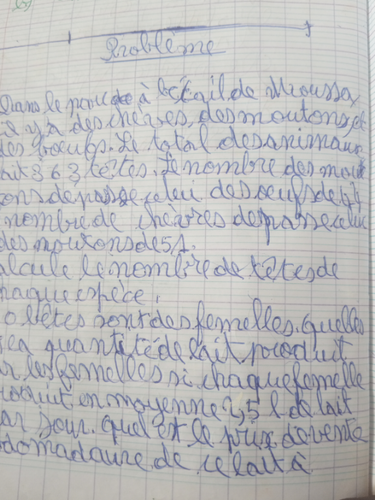 Problème
Dans le parc à bétail de Moussa
il y a des chèvres, des moutons, et
des boeufs. Le total des animaux
fait 363 têtes. Le nombre des mout
ons depasse celui des oeufs de
nombre de chèvres depasse celui
des moutons de 51.
alcule le nombre de têtes de
haque espèce.
bêtes sont des femelles. quelles
quantité de lait produit
ar les femelles si chaque femelle
roduit en moyenne l de lait
ar jour. quel est le prix de vente
domadaire de ce lait à